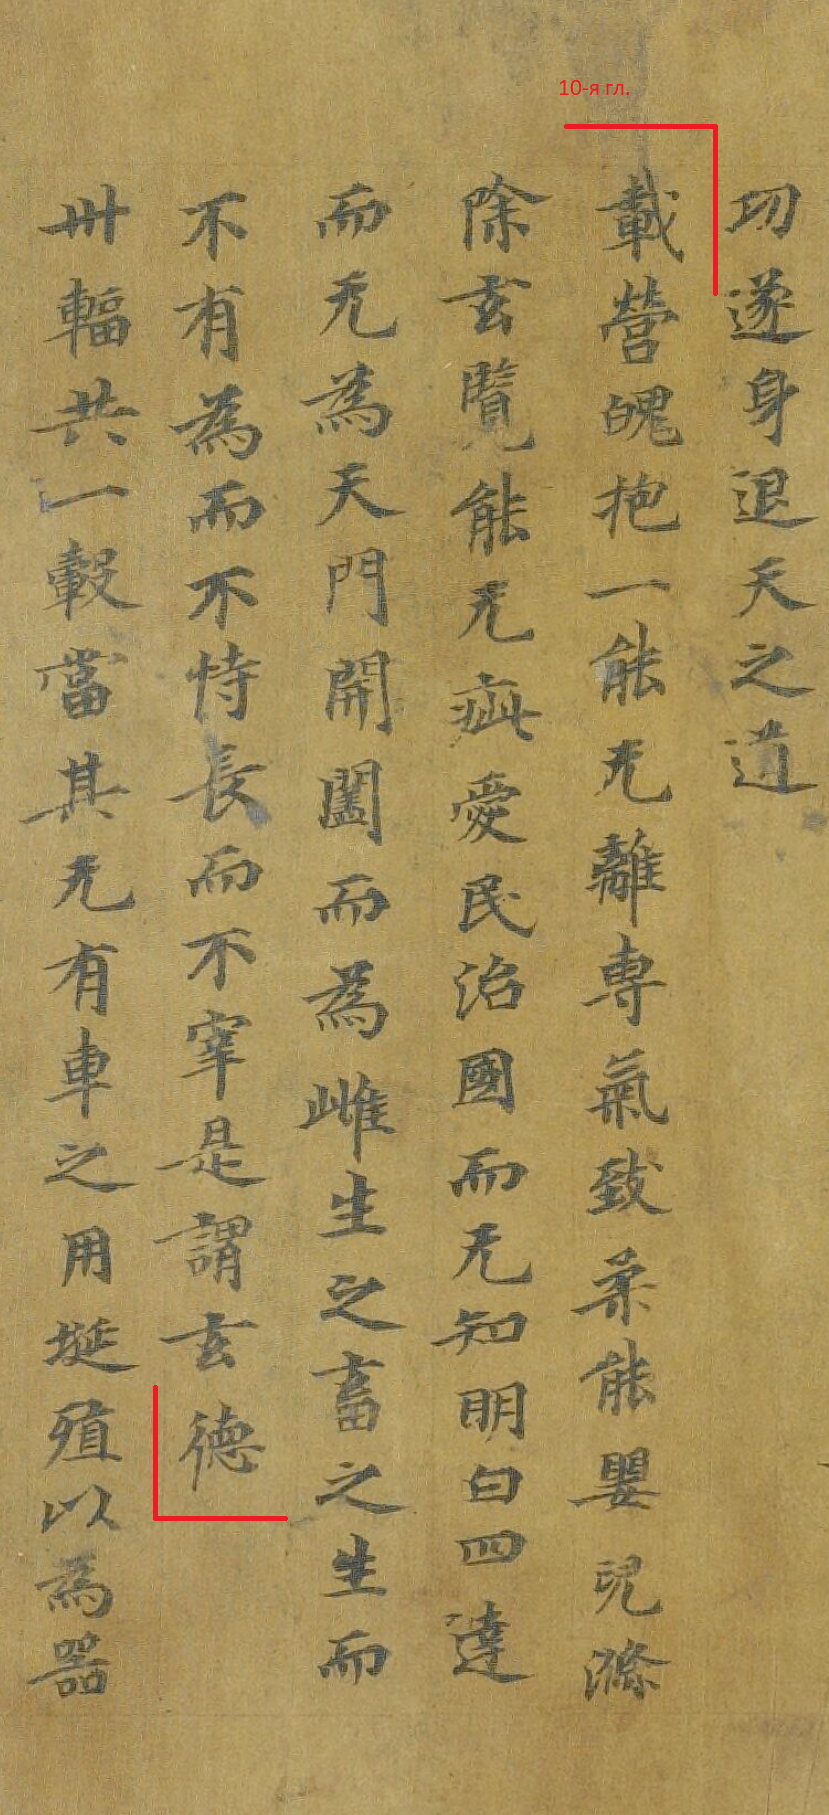 10-я гл.
功遂身退天之道
載營魄抱一能无離專氣致柔能嬰兒滌
除玄覽能无疵愛民治國而无知明白四達
而无為天門開闔而為雌生之畜之生而
不有為而不恃長而不宰是謂玄德
卅輻共一轂當其无有車之用埏殖以為器